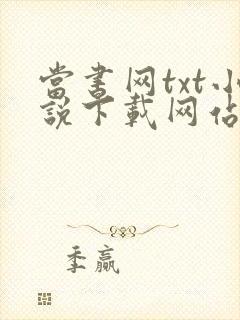 當书网txt小
說下載网佔
季赢